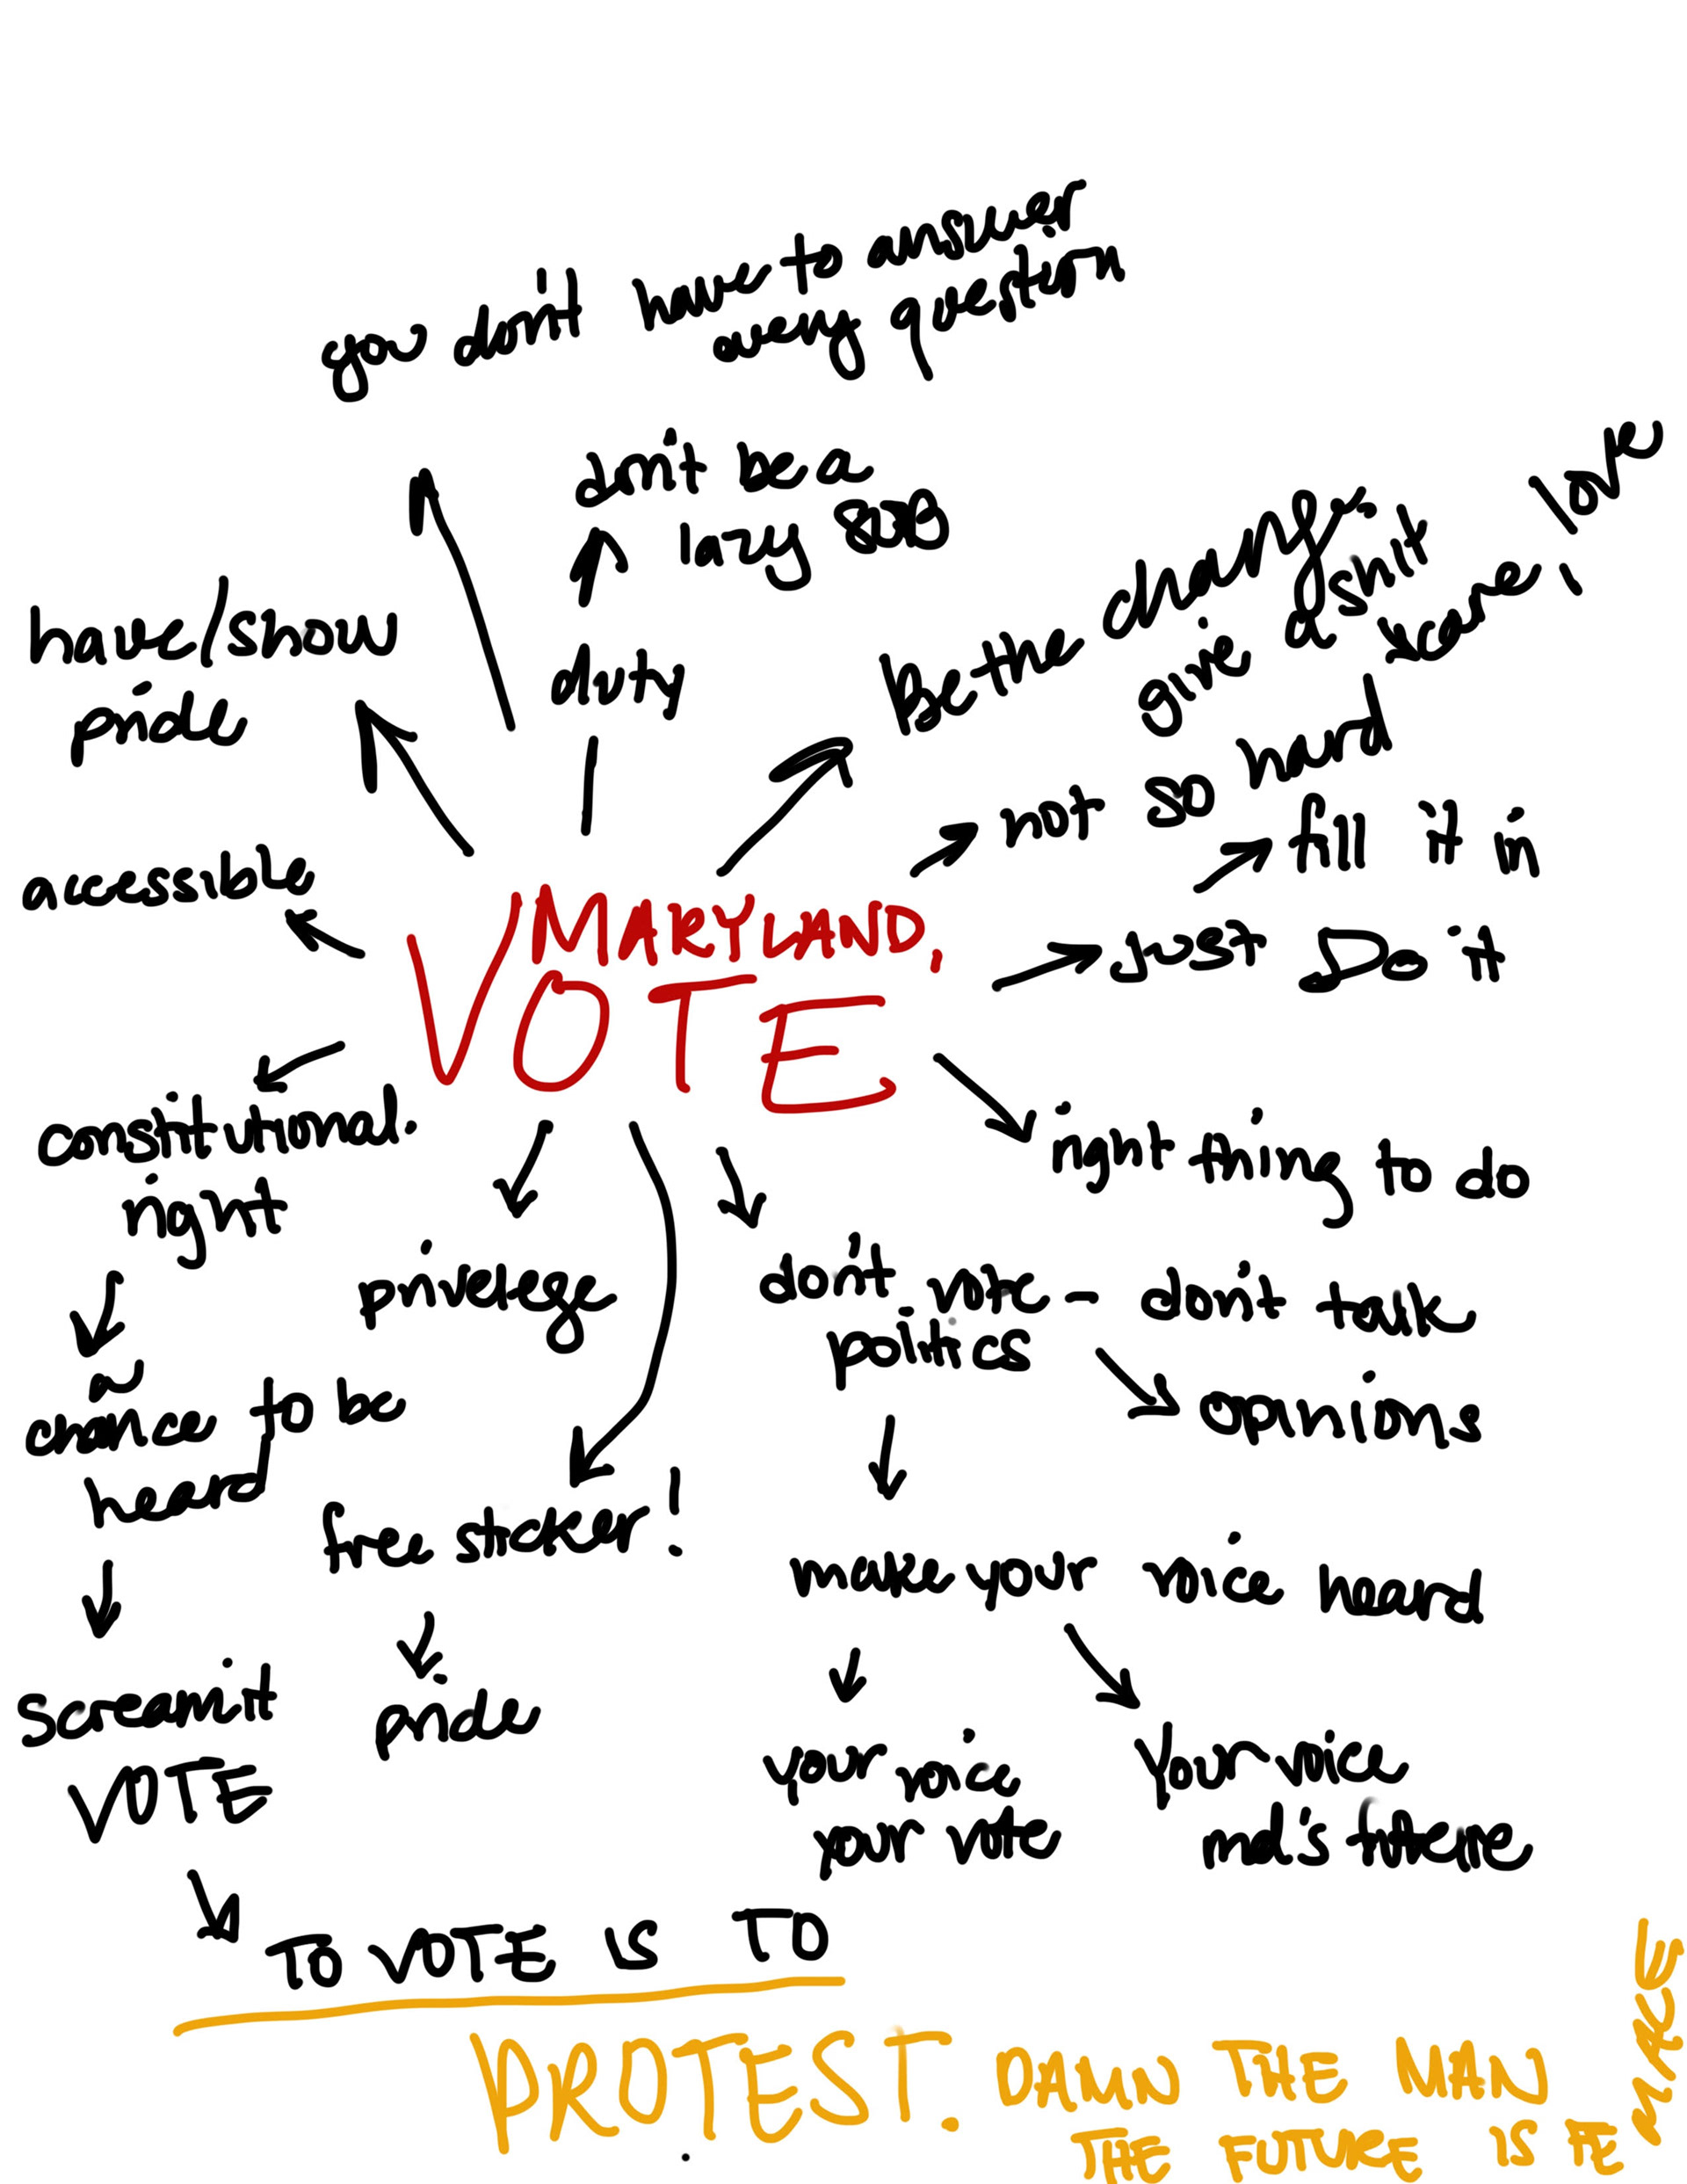 you don't have to answer
every question
don't be a
lazy
have/show
pride
duty
be the change
give a shit
not so hard
fill it in
acessible
MARYLAND,
VOTE
Just Do it
constitutional
right
right thing to do
privelege
don't vote - don't talk
politics
opinions
chance to be
heard
free sticker!
make your voice heard
scream it
VOTE
pride
your voice
your vote
your voice
md's future
TO VOTE IS TO
PROTEST. DAMN THE MAN
THE FUTURE IS